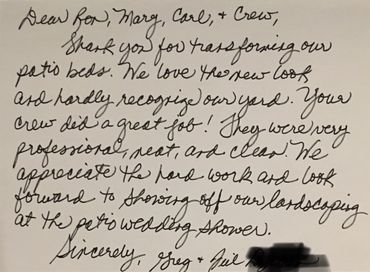 Dear Ron, Marg, Carl, + Crew,
Thank you for transforming our
patio beds. We love the new look
and hardly recognize our yard. Your
crew did a great job! They were very
professional, neat, and clean! We
appreciate the hard work and look
forward to showing off our landscaping
at the patio wedding shower.
Sincerely, Greg +